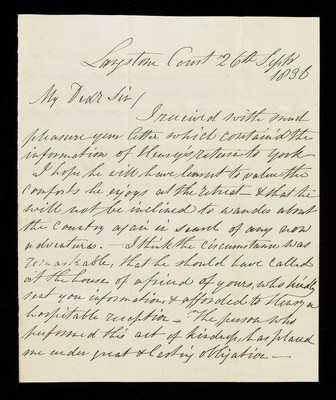 Langstone Court 26th Septr
1836
My Dear Sir/
I received with much
pleasure your letter which contained the
information of Henry's return to York
I hope he will have learnt to value the
comforts he enjoys at the retreat - & that he
will not be inclined to wander about
the Country again in search of any new
adventures. - I think the circumstance was
remarkable, that he should have called
at the house of a friend of yours, who kindly
sent you information, & afforded to Henry a
hospitable reception - The person who
performed this act of kindness, has placed
me under great & lasting obligation -